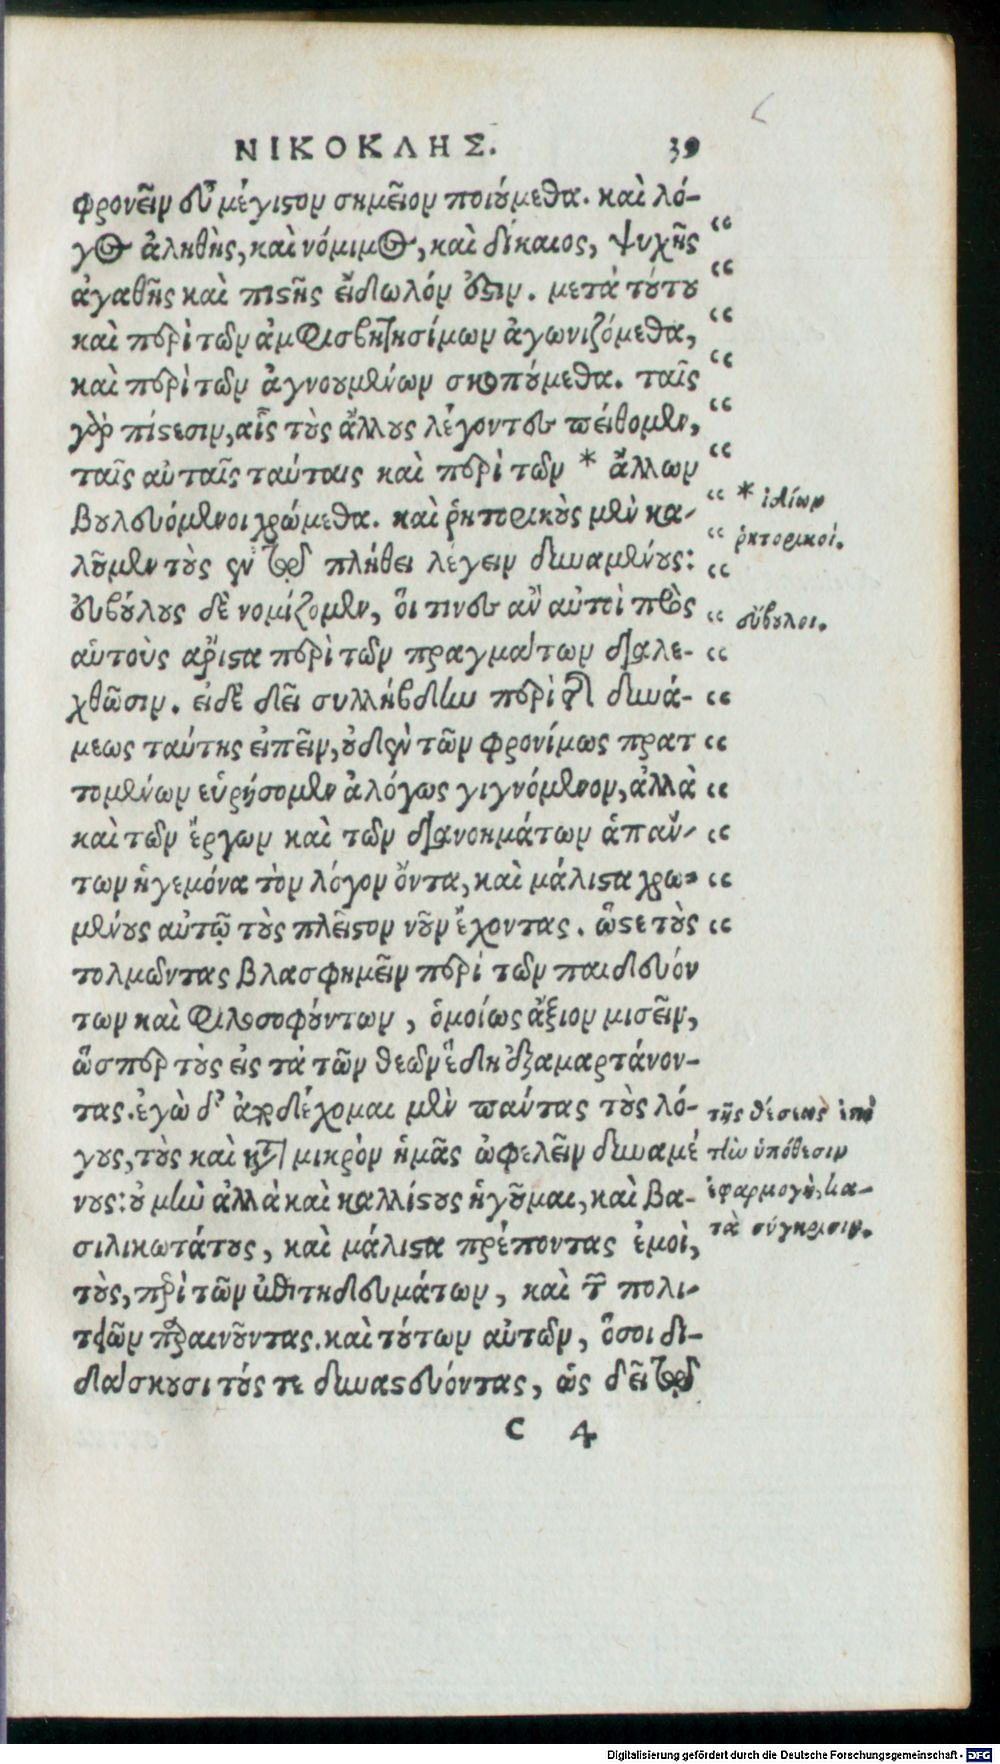 ΝΙΚΟΚΛΗΣ. 39
φρονεῖν εὖ μέγιστον σημεῖον ποιούμεθα. καὶ λό-
γος ἀληθὴς, καὶ νόμιμος, καὶ δίκαιος, ψυχῆς “
ἀγαθῆς καὶ πιστῆς εἴδωλόν ἐστιν. μετὰ τούτου “
καὶ περὶ τῶν ἀμφισβητησίμων ἀγωνιζόμεθα, “
καὶ περὶ τῶν ἀγνοουμένων σκοπούμεθα. ταῖς “
γὰρ πίστεσιν, αἷς τοὺς ἄλλους λέγοντες πείθομεν, “
ταῖς αὐταῖς ταύταις καὶ περὶ τῶν * ἄλλων “
βουλευόμενοι χρώμεθα. καὶ ῥητορικοὺς μὲν κα- “
* ἰδίων
ῥητορικοί.
λοῦμεν τοὺς ἐν τῷ πλήθει λέγειν δυναμένους: “
εὐβούλους δὲ νομίζομεν, οἵ τινες ἂν αὐτοὶ πρὸς “
εὔβουλοι.
αὑτοὺς ἄριστα περὶ τῶν πραγμάτων διαλε- “
χθῶσιν. εἰ δὲ δεῖ συλλήβδην περὶ τῆς δυνά- “
μεως ταύτης εἰπεῖν, οὐδὲν τῶν φρονίμως πρατ “
τομένων εὑρήσομεν ἀλόγως γιγνόμενον, ἀλλὰ “
καὶ τῶν ἔργων καὶ τῶν διανοημάτων ἁπάν- “
των ἡγεμόνα τὸν λόγον ὄντα, καὶ μάλιστα χρω- “
μένους αὐτῷ τοὺς πλεῖστον νοῦν ἔχοντας. ὥστε τοὺς “
τολμῶντας βλασφημεῖν περὶ τῶν παιδευόν
των καὶ φιλοσοφούντων, ὁμοίως ἄξιον μισεῖν,
ὥσπερ τοὺς εἰς τὰ τῶν θεῶν ἕδη ἐξαμαρτάνον-
τας. ἐγὼ δ' ἀποδέχομαι μὲν πάντας τοὺς λό-
γους, τοὺς καὶ κατὰ μικρὸν ἡμᾶς ὠφελεῖν δυναμέ
νους: οὐ μὴν ἀλλὰ καὶ καλλίστους ἡγοῦμαι, καὶ βα-
σιλικωτάτους, καὶ μάλιστα πρέποντας ἐμοὶ,
τῆς θέσεως ἐπὶ
τὴν ὑπόθεσιν
ἐφαρμογὴ, κα-
τὰ σύγκρισιν.
τοὺς, περὶ τῶν ἐπιτηδευμάτων, καὶ τῶν πολι-
τειῶν παραινοῦντας. καὶ τούτων αὐτῶν, ὅσοι δι-
δάσκουσι τούς τε δυναστεύοντας, ὡς δεῖ τῷ
C 4
Digitalisierung gefördert durch die Deutsche Forschungsgemeinschaft - DFG